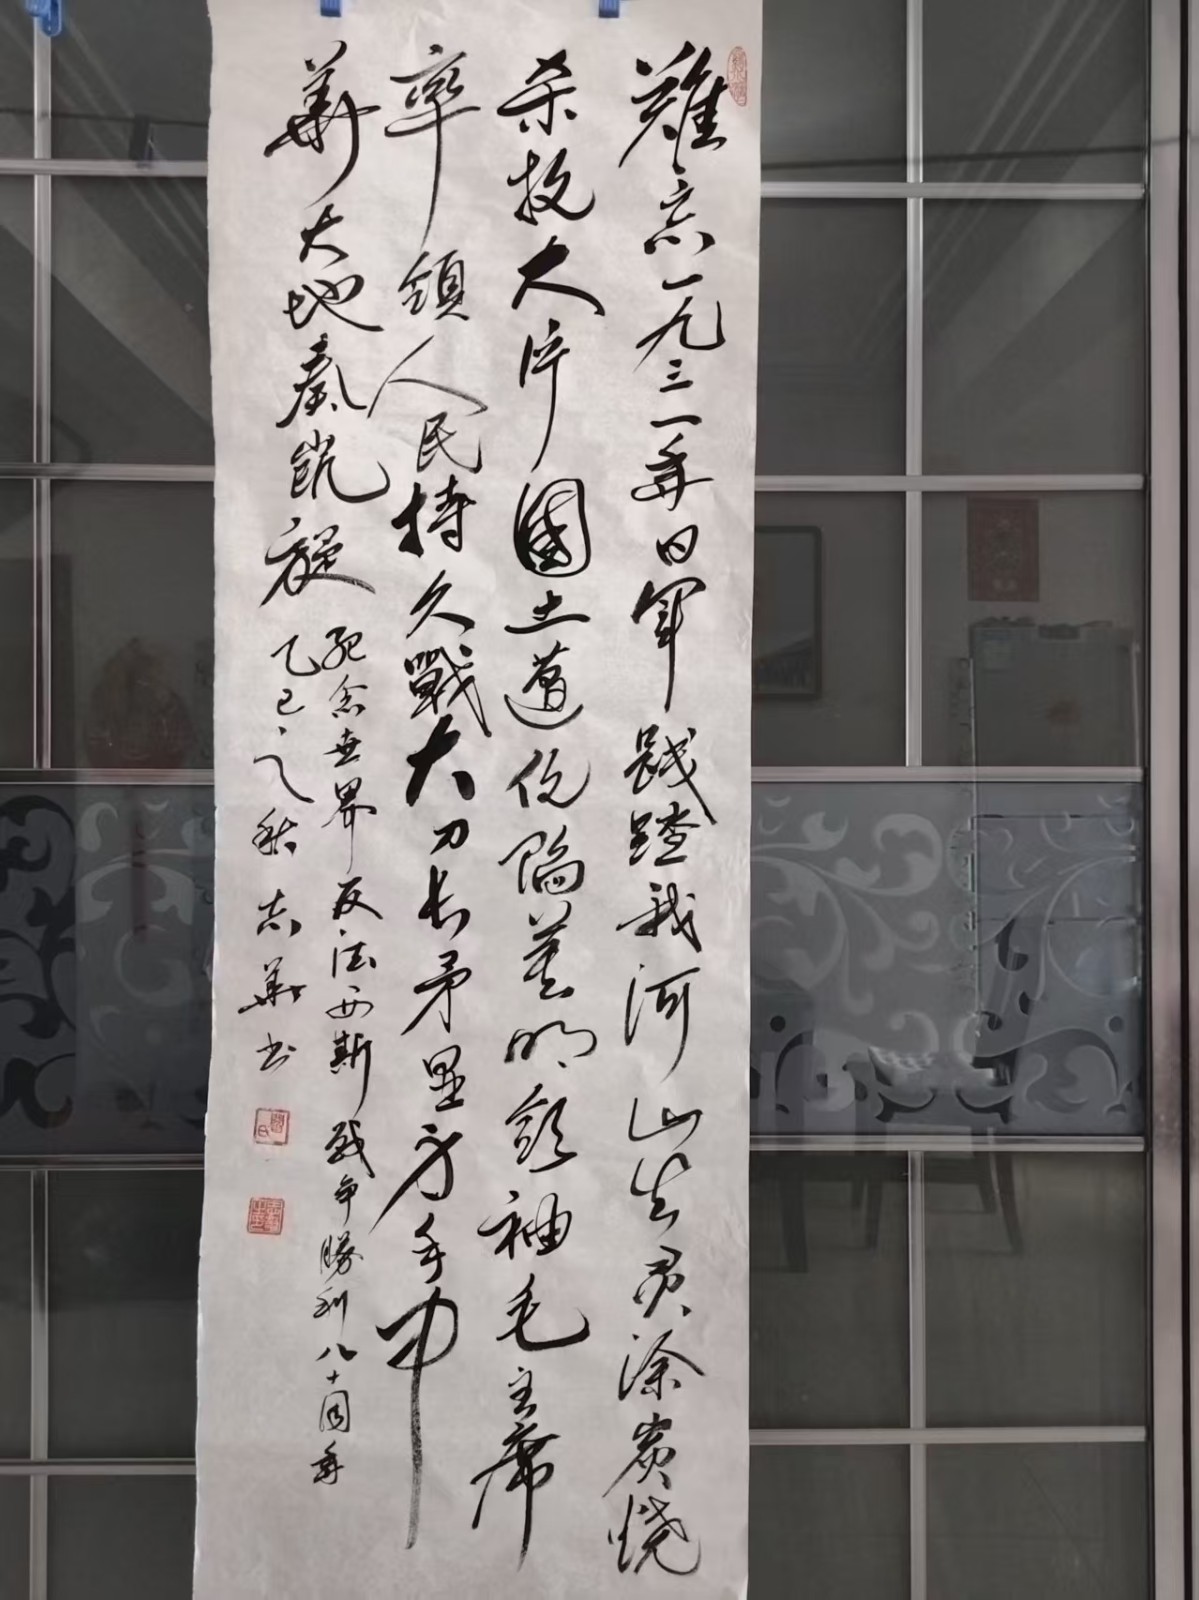 難忘一九三一年日軍踐踏我河山生灵涂炭燒
杀抢大片國土遭沦陷英明領袖毛主席
率領人民持久戰大刀长矛显身手中
華大地奏凯旋
纪念世界反法西斯战争勝利八十周年
乙巳之秋志華书